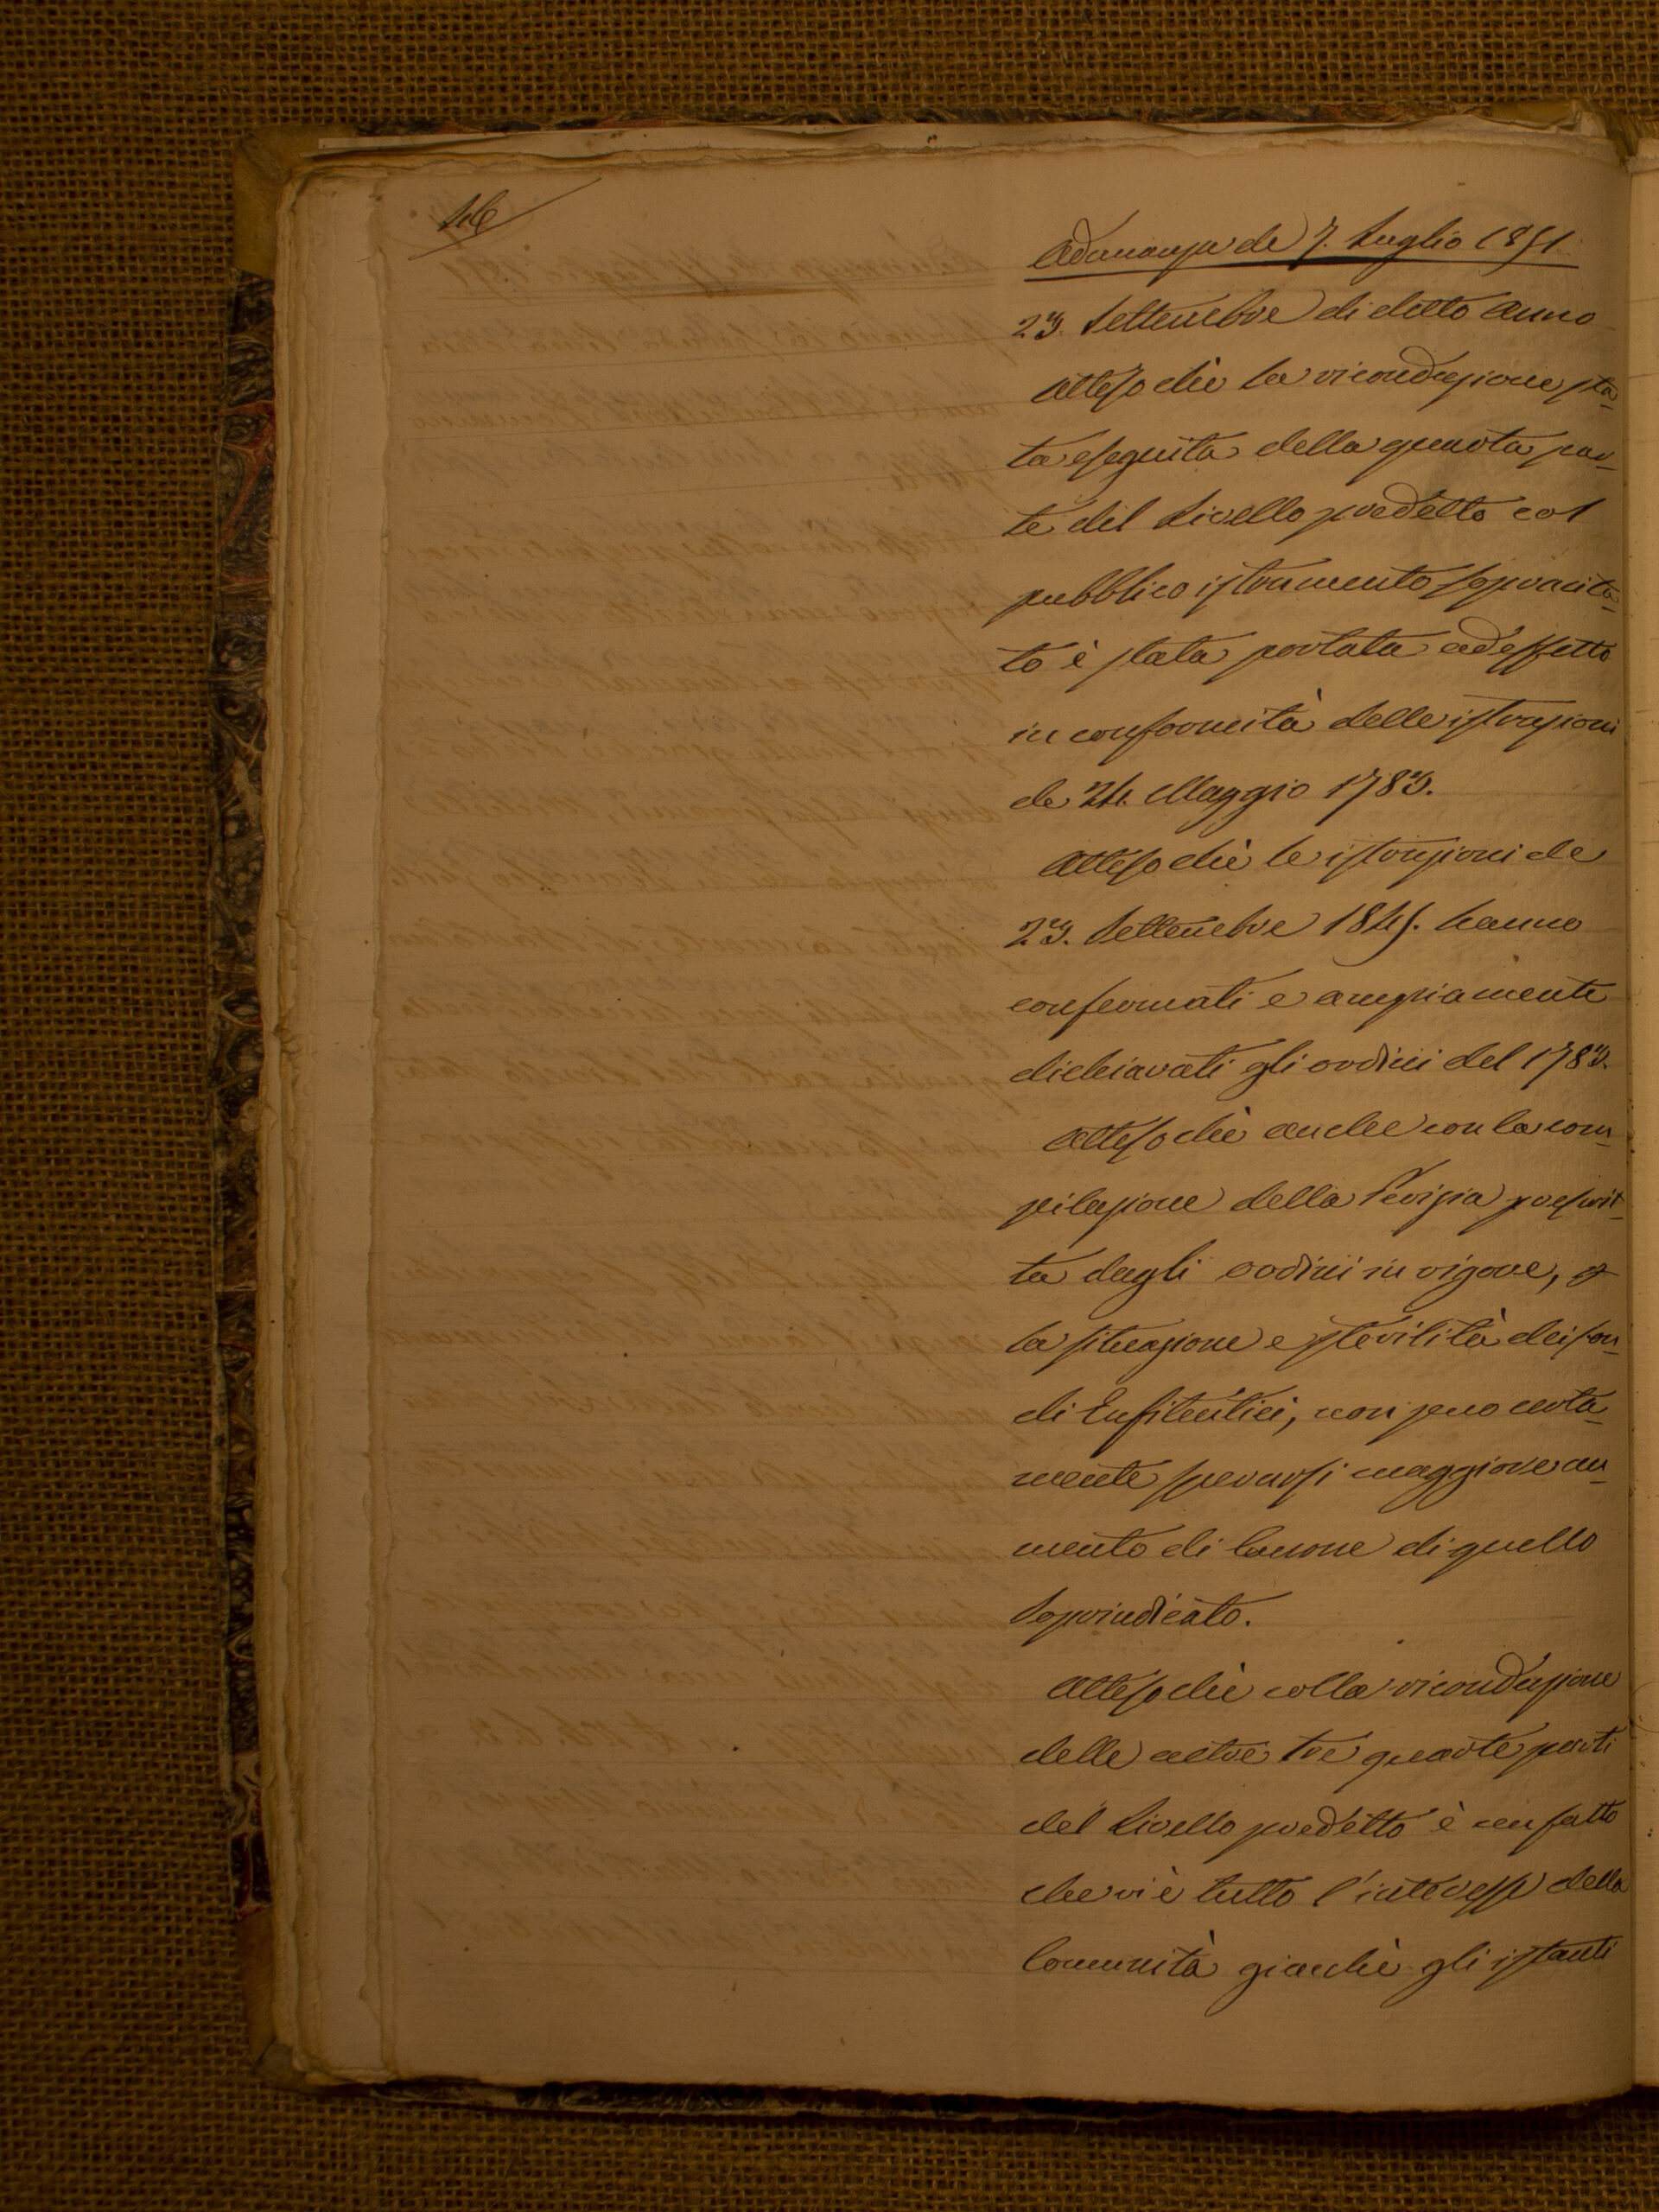 46
Adunanza de 7. Luglio 1851
23. Settembre di detto anno
Attesochè la riconduzione sta-
ta eseguita della quarta par-
te del Livello predetto col
pubblico istrumento sopracita-
to è stata portata ad effetto
in conformità delle istruzioni
de 24. Maggio 1783.
Attesochè le istruzioni de
23. Settembre 1845. hanno
confermati e ampiamente
dichiarati gli ordini del 1783.
Attesochè anche con la com-
pilazione della Perizia prescrit-
ta dagli ordini in vigore, e
la situazione e sterilità dei fon-
di Enfiteutici, non puo certa-
mente sperarsi maggiore au-
mento di Canone di quello
Sopraindicato.
Attesochè colla riconduzione
delle altre tre quarte parti
del Livello predetto è un fatto
che vi è tutto l'interesse della
Comunità giacchè gli istanti